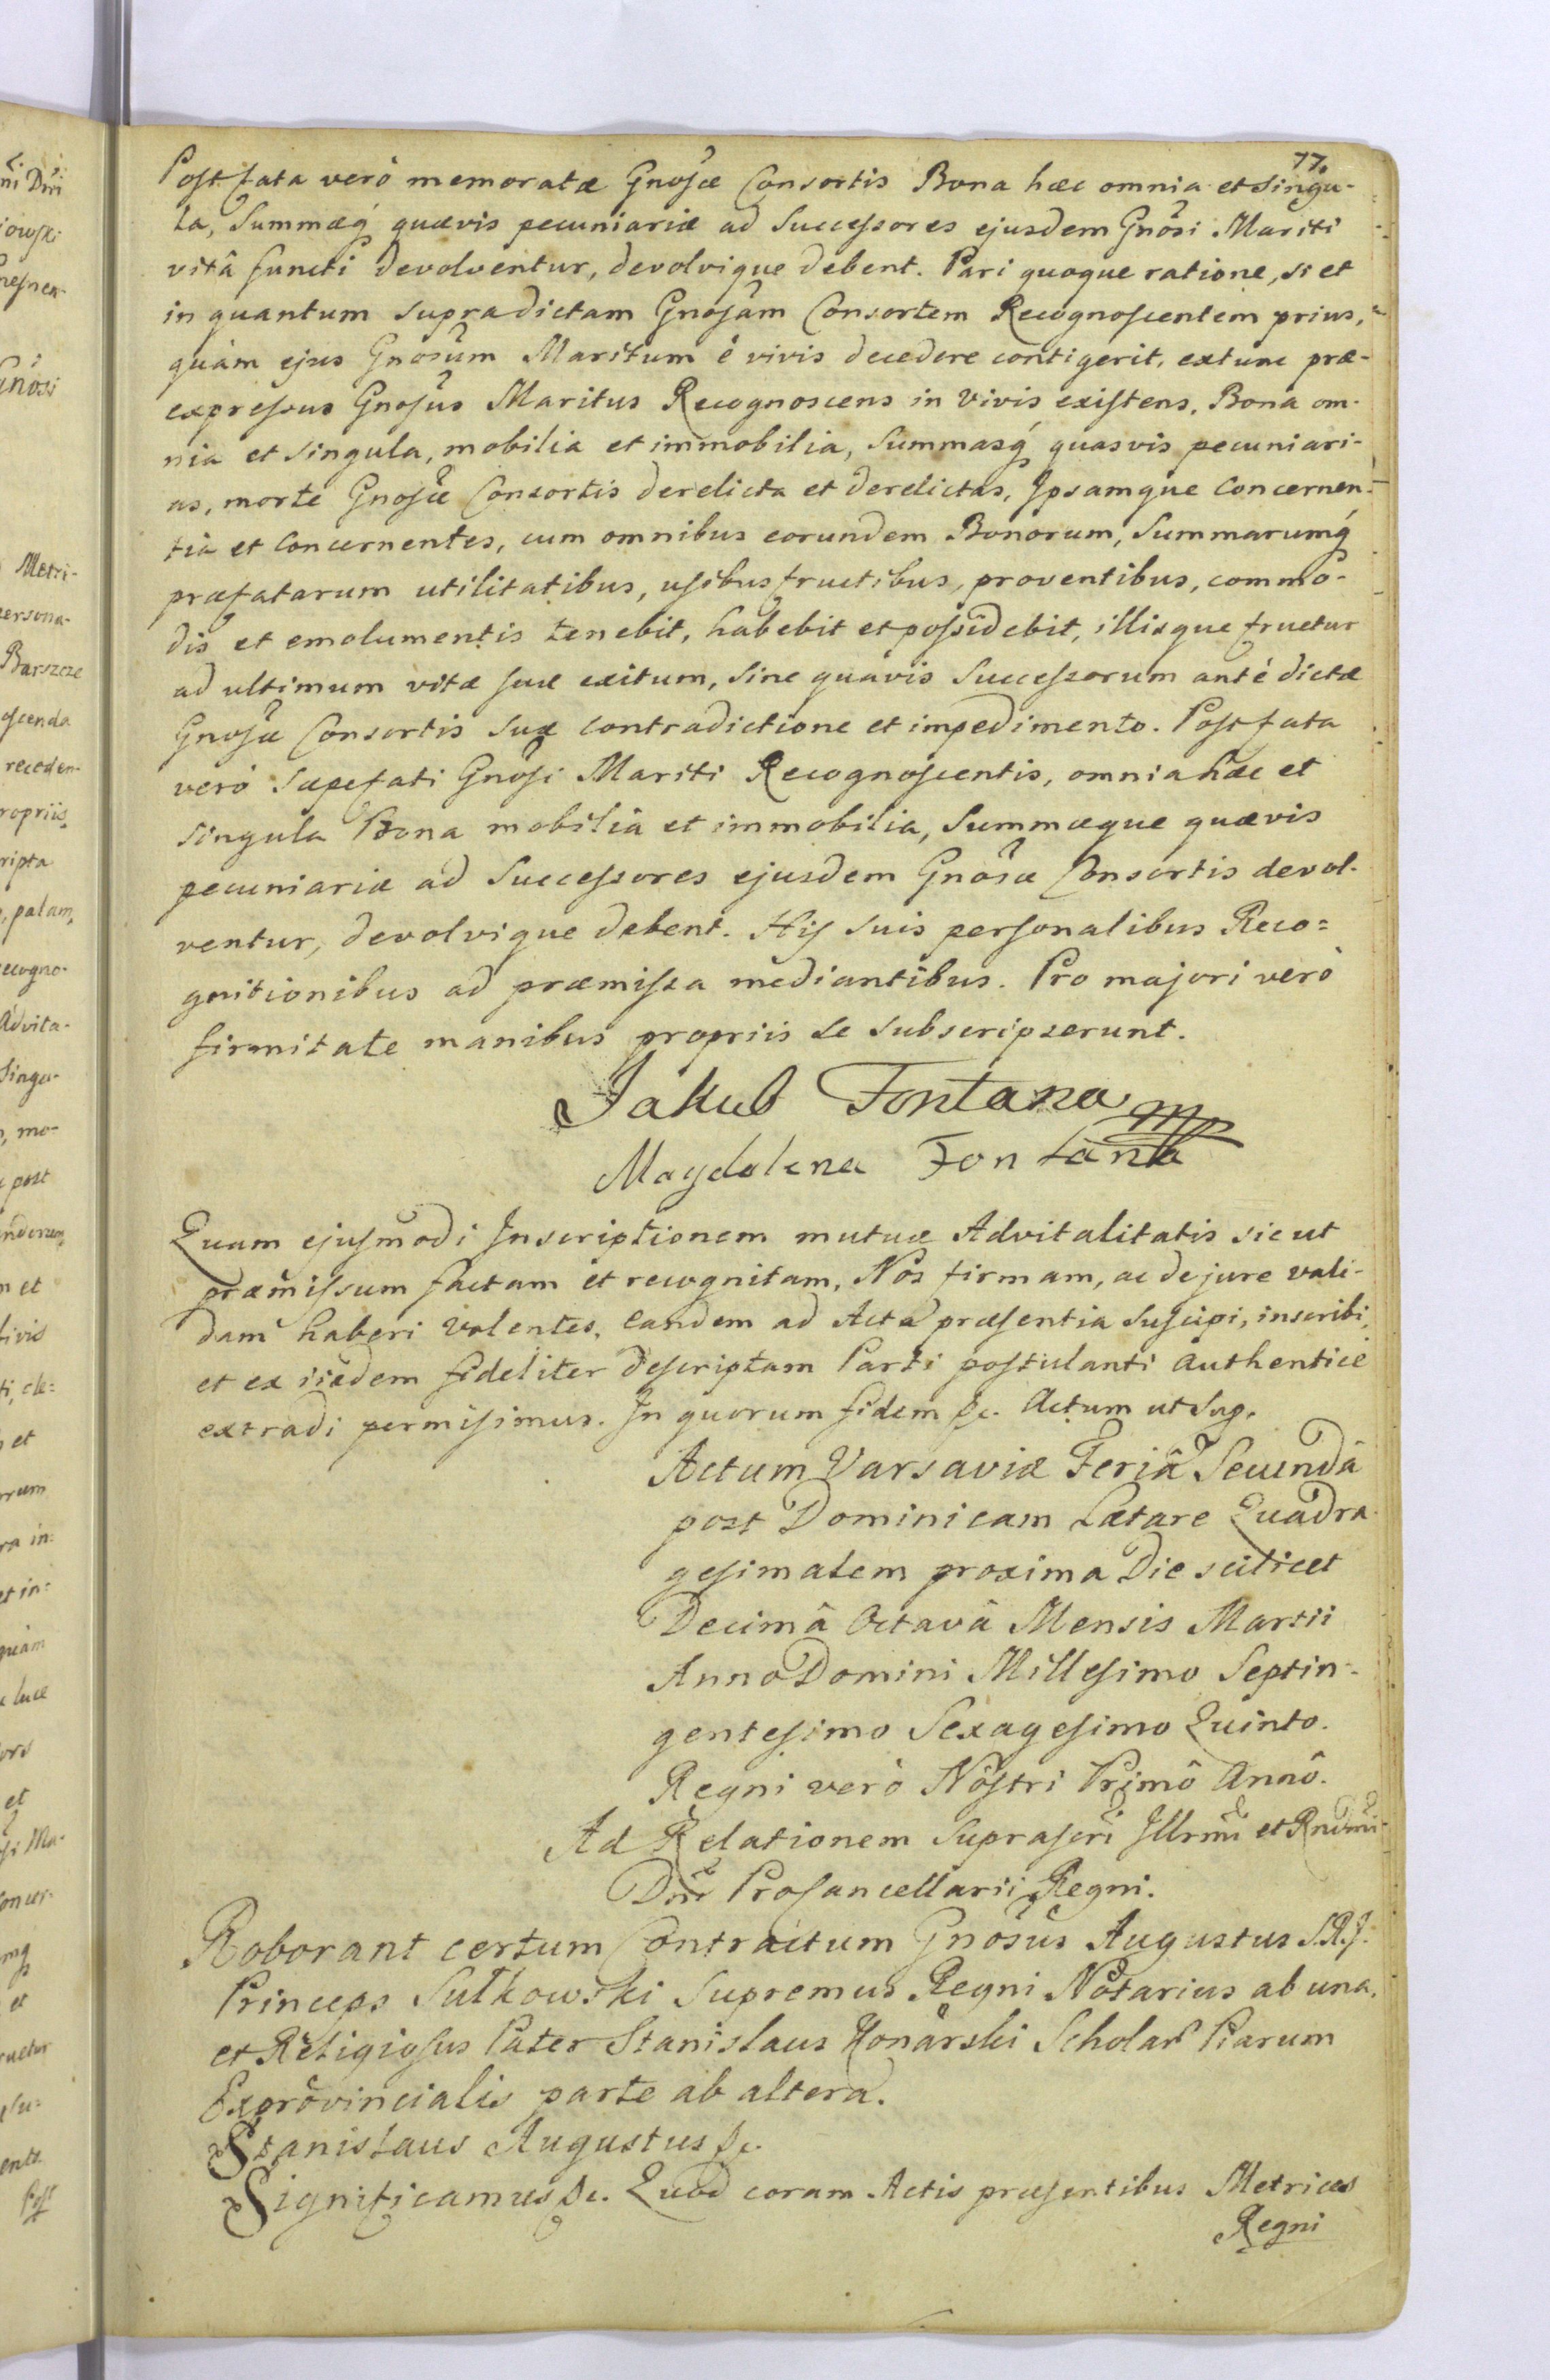 77.
Post fata verò memoratæ Gnosæ Consortis Bona hæc omnia et singu-
la, Summæq́ quævis pecuniariæ ad Successores ejusdem Gnosi Mariti
vitâ functi devolventur, devolvique debent. Pari quoque ratione, si et
in quantum supradictam Gnosam Consortem Recognoscentem prius,
quàm ejus Gnosum Maritum è vivis decedere contigerit, extunc præ-
expressus Gnosus Maritus Recognoscens in vivis existens, Bona om-
nia et singula, mobilia et immobilia, Summasq́ quasvis pecuniari-
as, morte Gnosæ Consortis derelicta et derelictas, Ipsamque Concernen-
tia et Concernentes, cum omnibus eorundem Bonorum, Summarumq́
præfatarum utilitatibus, usibusfructibus, proventibus, commo-
dis et emolumentis tenebit, habebit et possidebit, illisque fruetur
ad ultimum vitæ suæ exitum, sine quavis Successorum antè dictæ
Gnosæ Consortis suæ contradictione et impedimento. Post fata
verò sæpefati Gnosi Mariti Recognoscentis, omnia hæc et
singula Bona mobilia et immobilia, Summæque quævis
pecuniariæ ad Successores ejusdem Gnosæ Consortis devol-
ventur, devolvique debent. His suis personalibus Reco=
gnitionibus ad præmissa mediantibus. Pro majori verò
firmitate manibus propriis se subscripserunt.
Jakub Fontana mp
Magdalena Fontana
Quam ejusmodi Inscriptionem mutuæ Advitalitatis sicut
præmissum factam et recognitam, Nos firmam, ac de jure vali-
dam haberi volentes, Eandem ad Acta præsentia suscipi, inscribi,
et ex iisdem fideliter descriptam Parti postulanti authenticè
extradi permisimus. In quorum fidem &c. Actum ut sup.
Actum Varsaviæ Feriâ Secundâ
post Dominicam Lætare Quadra
gesimalem proxima Die scilicet
Decimâ Octavâ Mensis Martii
Anno Domini Millesimo Septin-
gentesimo Sexagesimo Quinto.
Regni verò Nostri Primô Annô.
Ad Relationem suprascri Illrmi et Rndmi
Dni Procancellarii Regni.
Roborant certum Contractum Gnosus Augustus S.R.J.
Princeps Sułkowski Supremus Regni Notarius ab una,
et Religiosus Pater Stanislaus Konarski Scholar Piarum
Exprovincialis parte ab altera.
Stanislaus Augustus &c.
Significamus &c. Quod coram Actis præsentibus Metrices
Regni